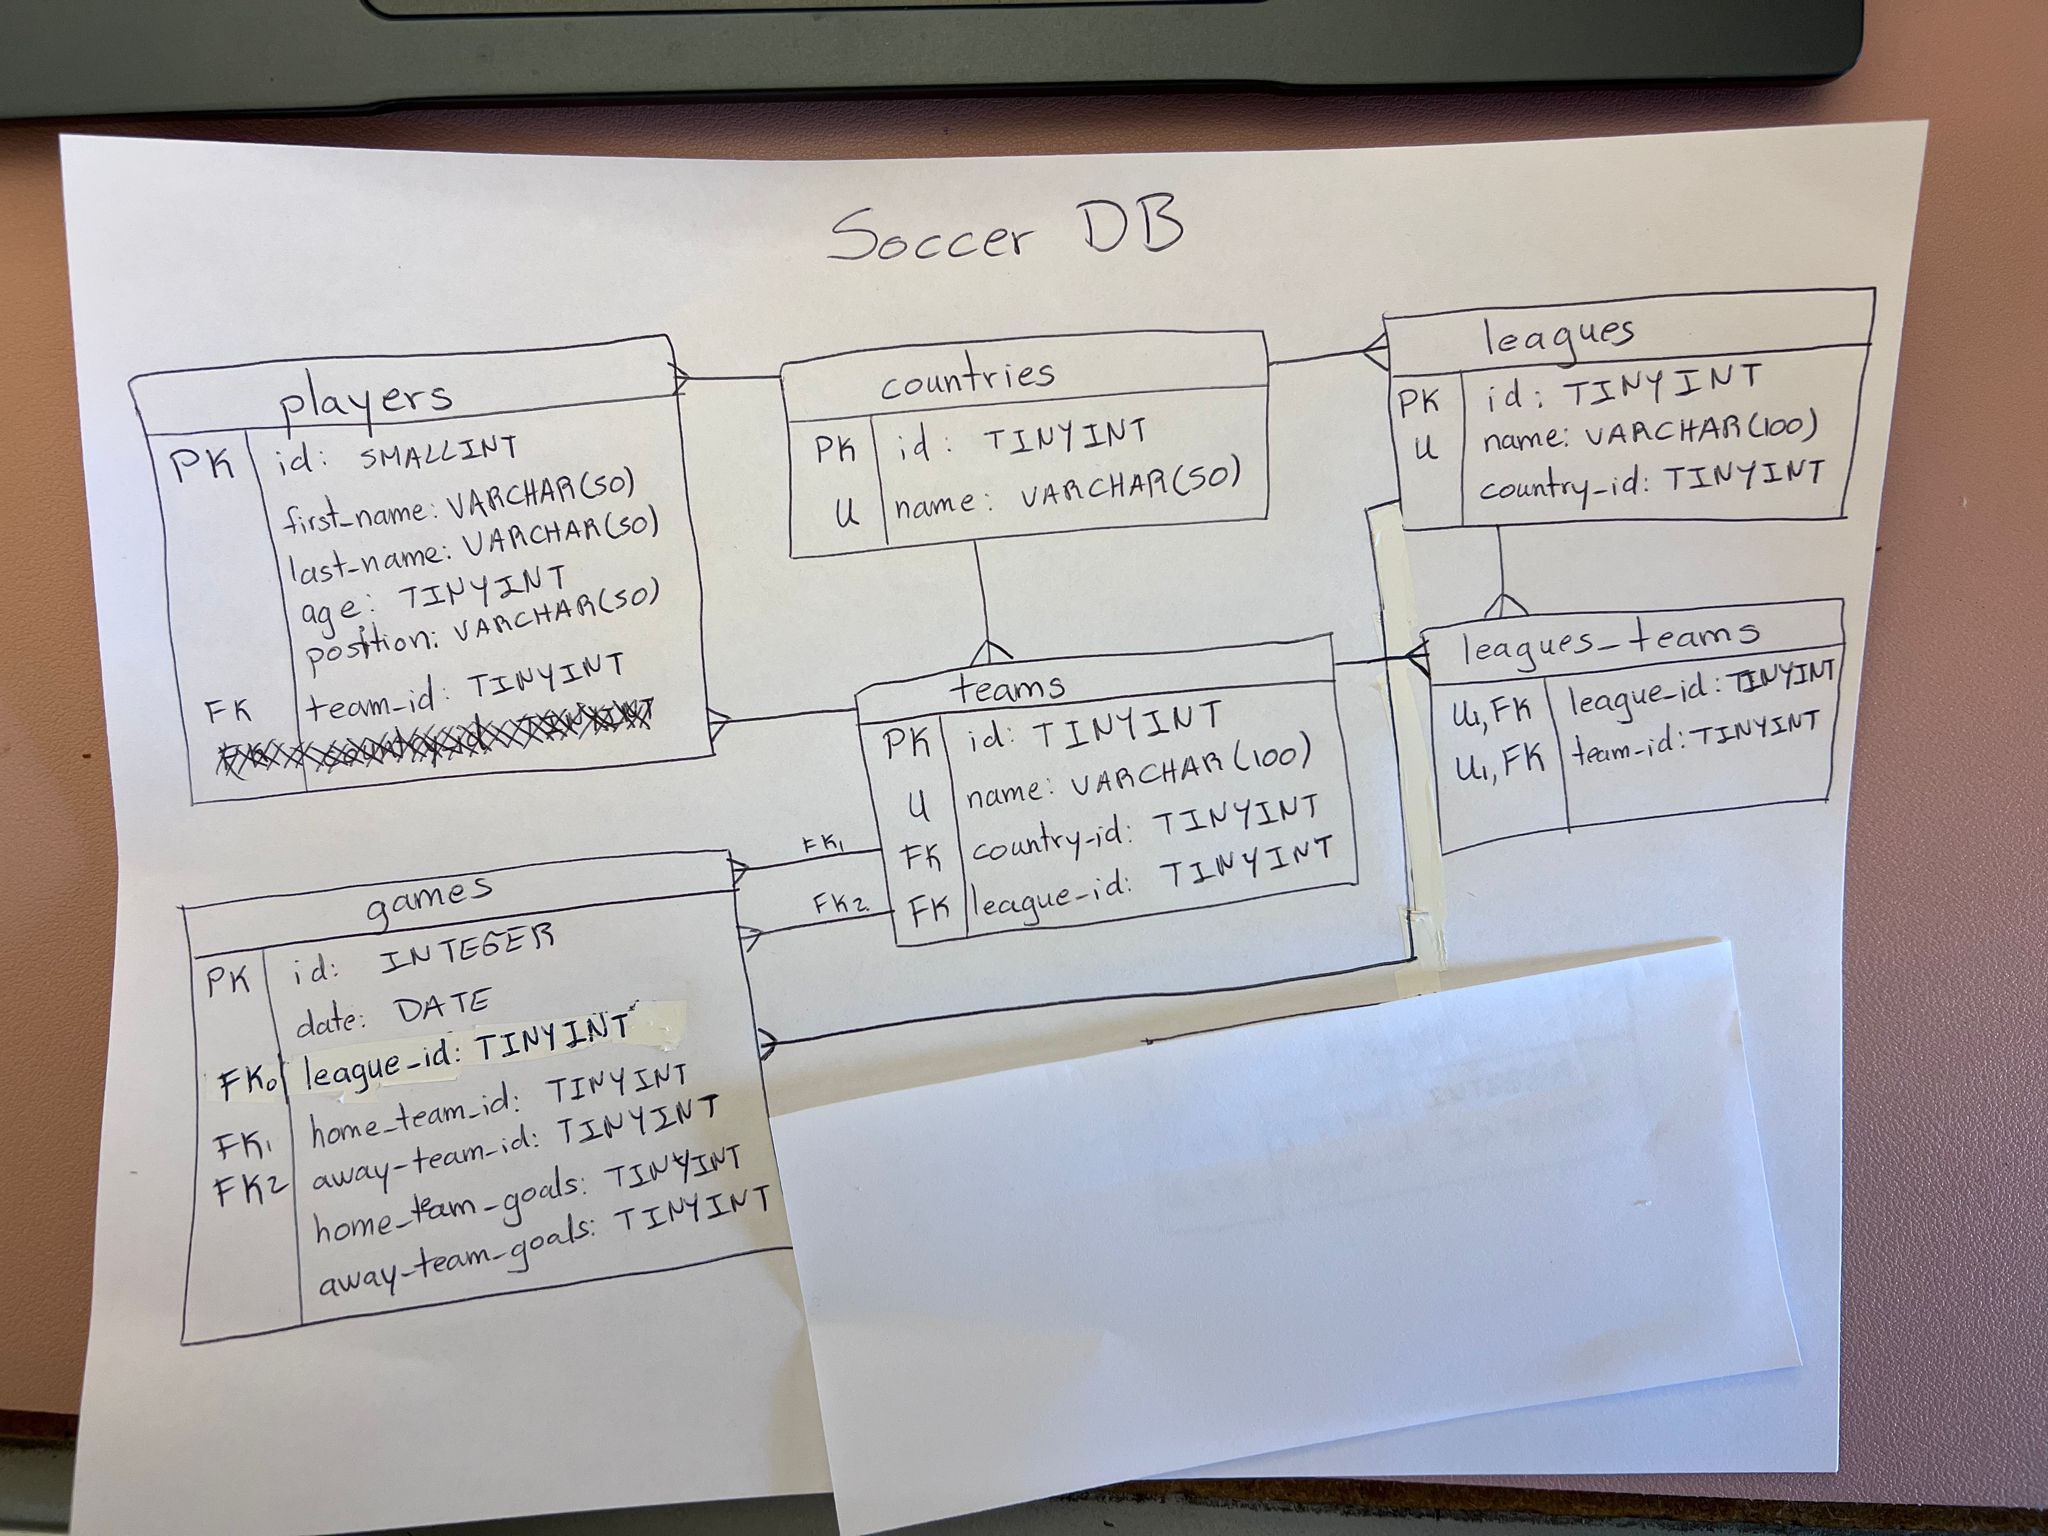 Soccer DB
players
PK id: SMALLINT
first_name: VARCHAR(50)
last_name: VARCHAR(50)
age: TINYINT
position: VARCHAR(50)
FK team_id: TINYINT
countries
PK id: TINYINT
U name: VARCHAR(50)
leagues
PK id: TINYINT
U name: VARCHAR(100)
country_id: TINYINT
leagues_teams
U1, FK league_id: TINYINT
U1, FK team_id: TINYINT
teams
PK id: TINYINT
U name: VARCHAR(100)
FK country_id: TINYINT
FK league_id: TINYINT
FK1
FK2
games
PK id: INTEGER
date: DATE
FK0 league_id: TINYINT
FK1 home_team_id: TINYINT
FK2 away_team_id: TINYINT
home_team_goals: TINYINT
away_team_goals: TINYINT